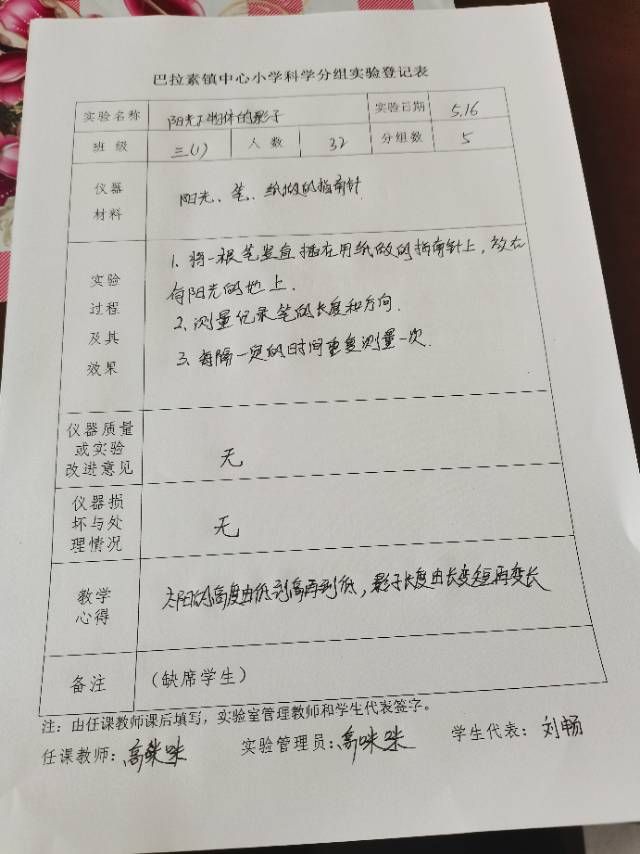 巴拉素镇中心小学科学分组实验登记表
实验名称 阳光下物体的影子 实验日期 5.16
班 级 三(1) 人 数 32 分组数 5
仪器
材料
阳光、笔、纸做的指南针
实验
过程
及其
效果
1、将一根笔竖直插在用纸做的指南针上，放在
有阳光的地上.
2、测量记录笔的长度和方向.
3、每隔一定的时间重复测量一次.
仪器质量
或实验
改进意见
无
仪器损
坏与处
理情况
无
教学
心得
太阳的高度由低到高再到低，影子长度由长变短再变长
备注 （缺席学生）
注：由任课教师课后填写，实验室管理教师和学生代表签字。
任课教师：高咪咪 实验管理员：高咪咪 学生代表：刘畅